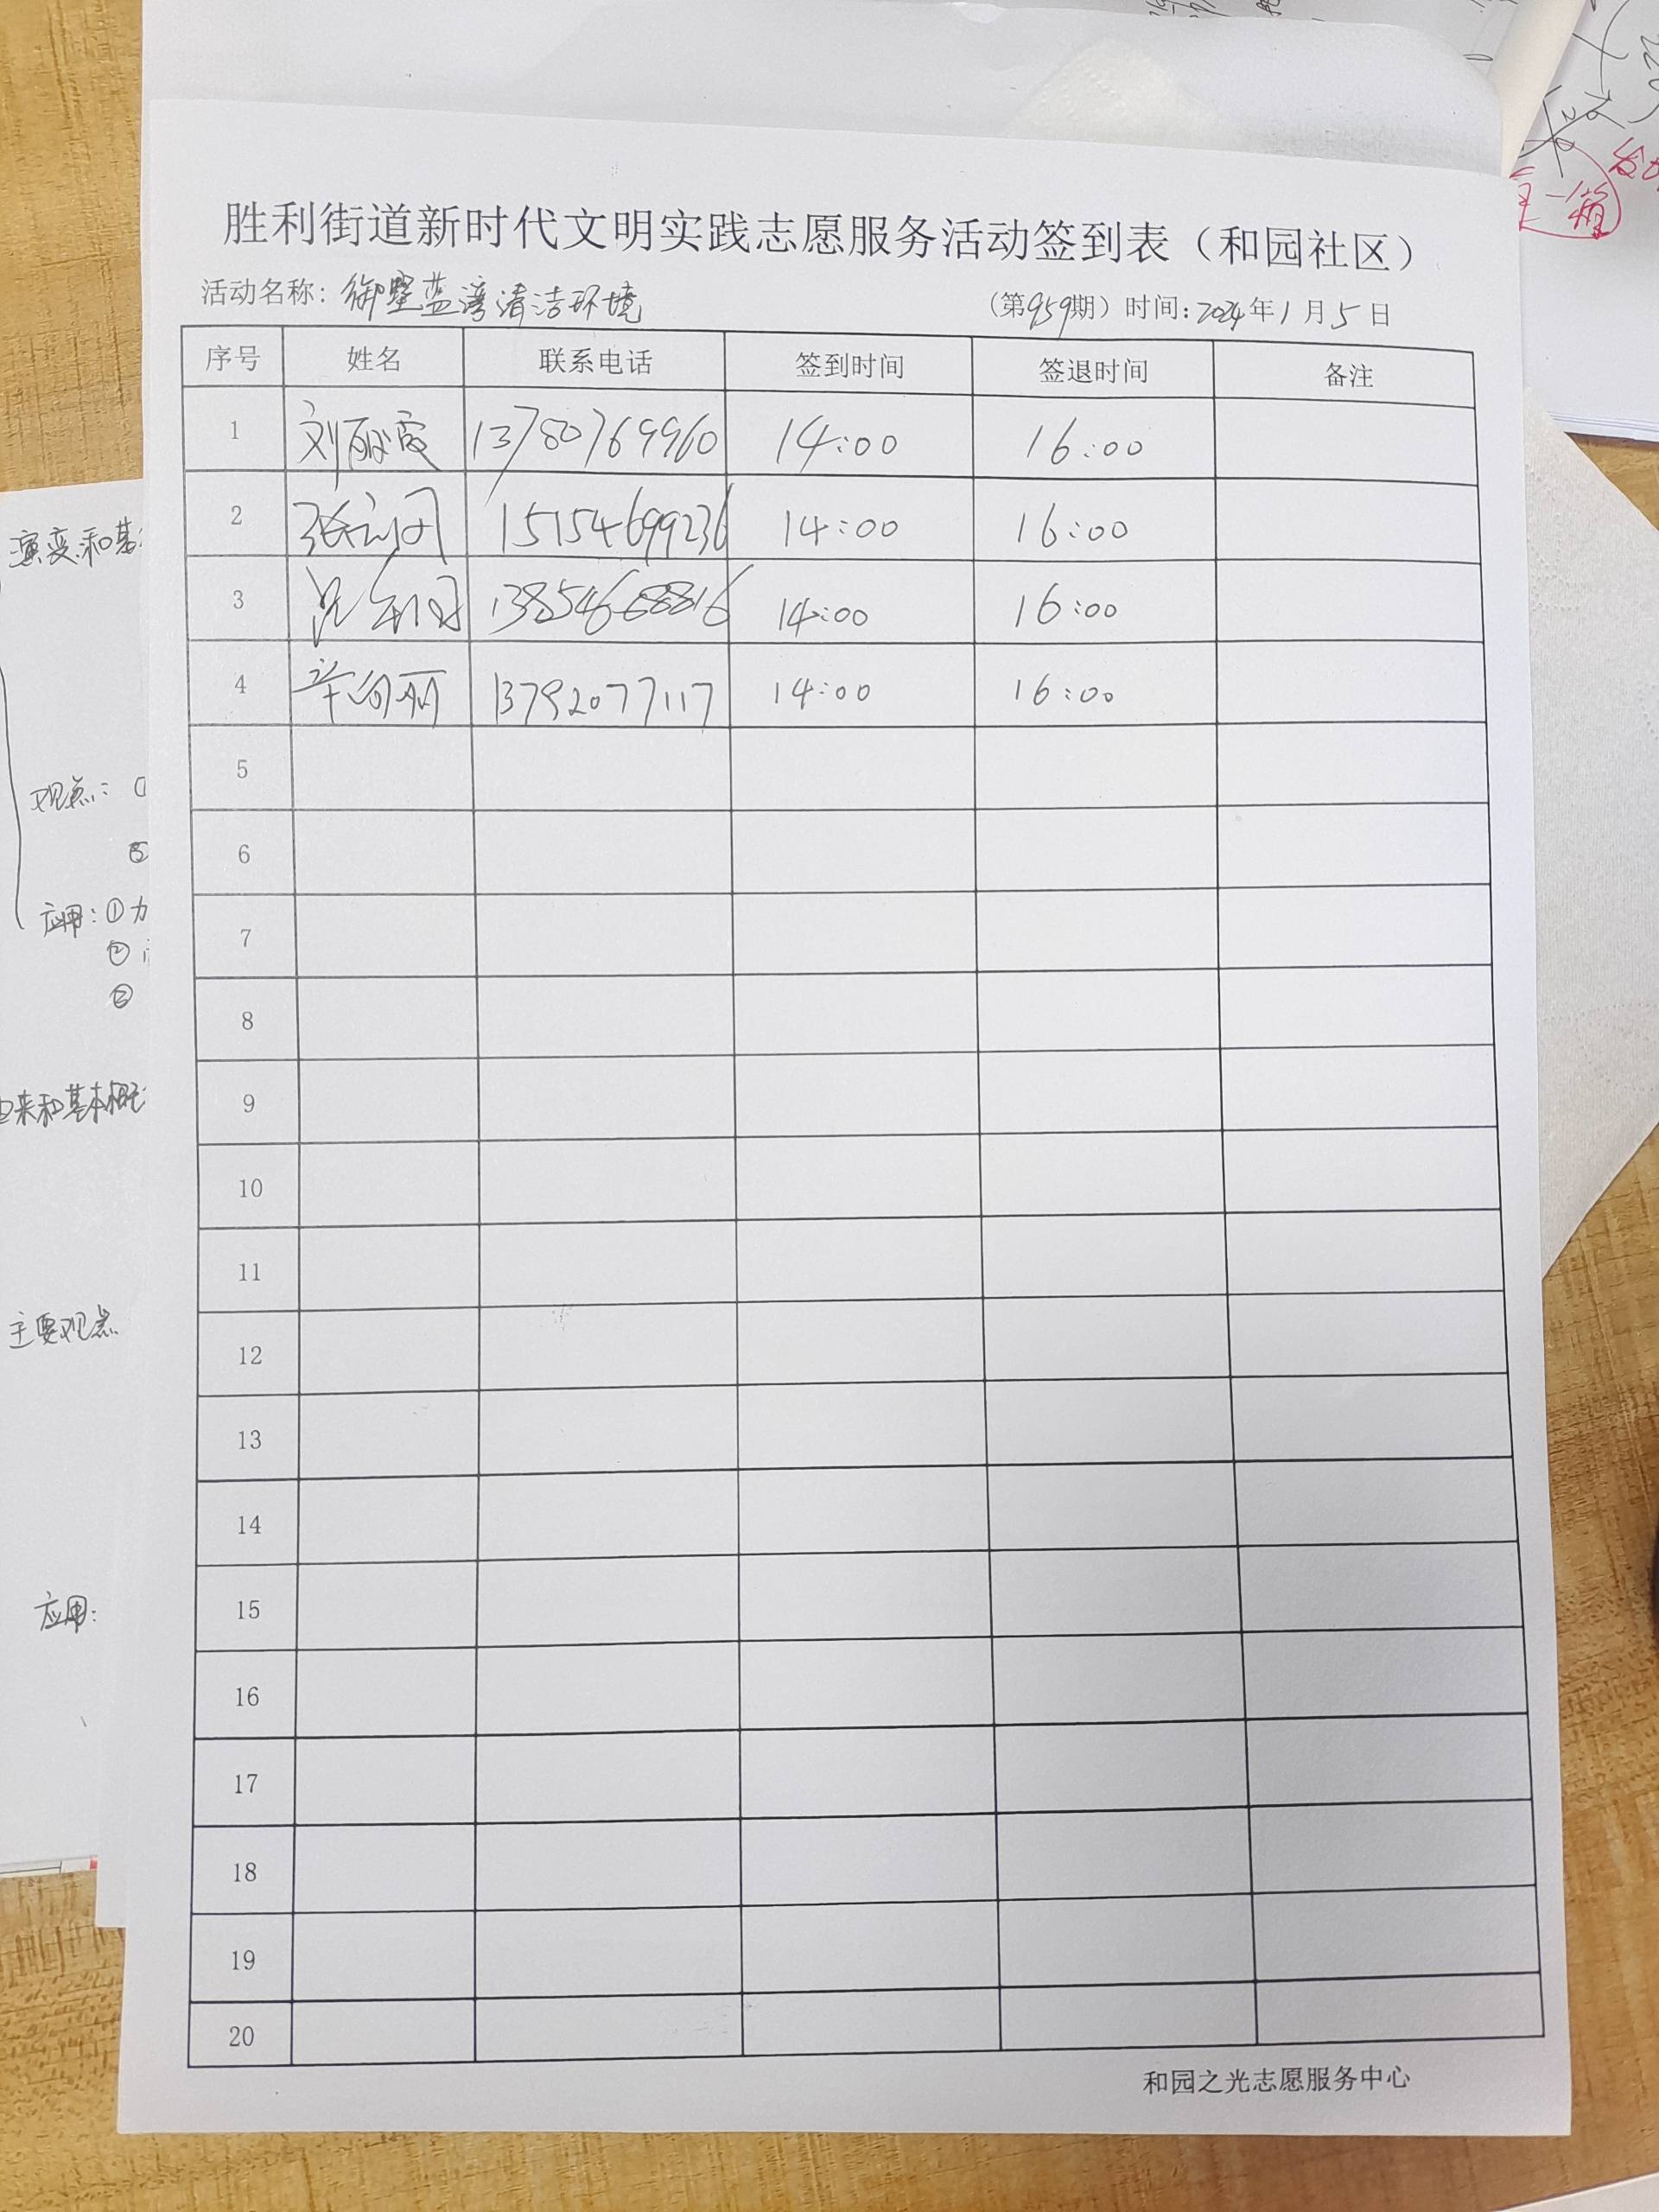 胜利街道新时代文明实践志愿服务活动签到表（和园社区）
活动名称：御墅蓝湾清洁环境 （第959期）时间：2024年1月5日
序号 姓名 联系电话 签到时间 签退时间 备注
1 刘丽霞 13780769960 14:00 16:00
2 15154699236 14:00 16:00
3 13854668816 14:00 16:00
4 13792077117 14:00 16:00
5
6
7
8
9
10
11
12
13
14
15
16
17
18
19
20
和园之光志愿服务中心
演变和基
观点：①
②
应用：①力
②
③
来和基本概
主要观点
应用：
一箱